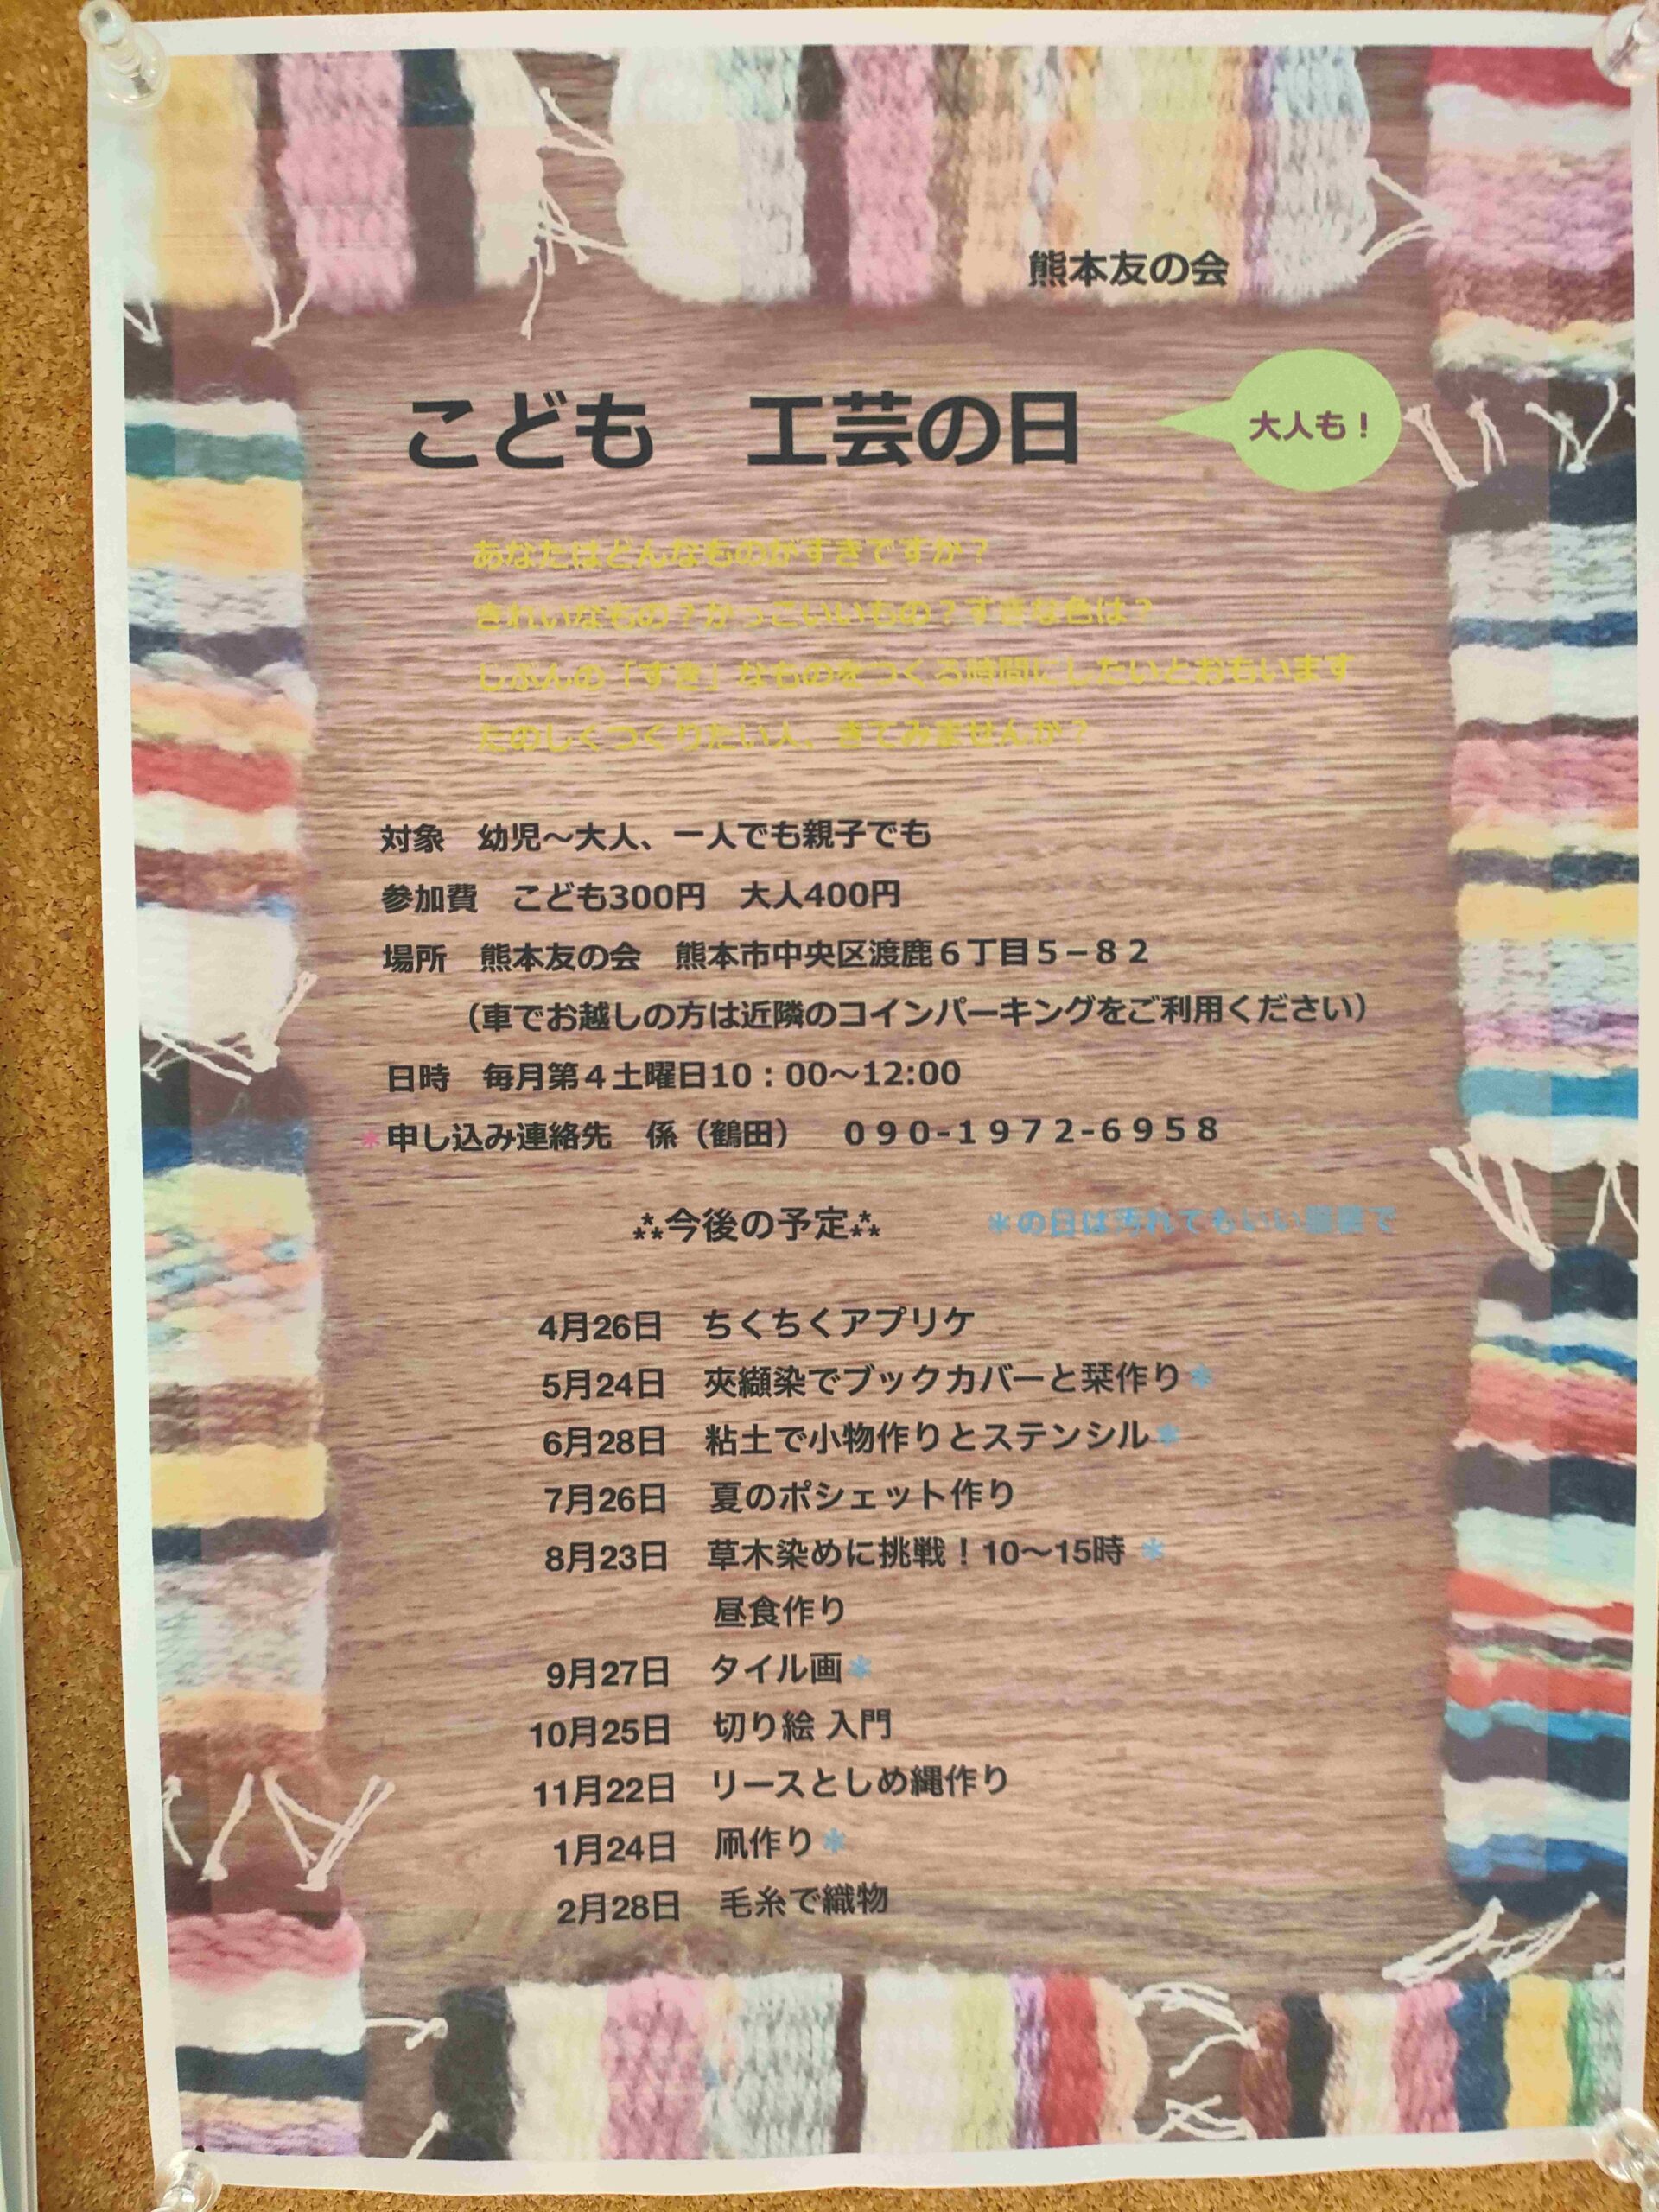 熊本友の会
こども　工芸の日
大人も！
あなたはどんなものがすきですか？
きれいなもの？かっこいいもの？すきな色は？
じぶんの「すき」なものをつくる時間にしたいとおもいます
たのしくつくりたい人、きてみませんか？
対象　幼児～大人、一人でも親子でも
参加費　こども300円　大人400円
場所　熊本友の会　熊本市中央区渡鹿６丁目５−８２
（車でお越しの方は近隣のコインパーキングをご利用ください）
日時　毎月第４土曜日10：00～12:00
*申し込み連絡先　係（鶴田）　０９０-１９７２-６９５８
⁂今後の予定⁂　＊の日は汚れてもいい服装で
4月26日　ちくちくアプリケ
5月24日　夾纈染でブックカバーと栞作り＊
6月28日　粘土で小物作りとステンシル＊
7月26日　夏のポシェット作り
8月23日　草木染めに挑戦！10～15時 ＊
昼食作り
9月27日　タイル画＊
10月25日　切り絵 入門
11月22日　リースとしめ縄作り
1月24日　凧作り＊
2月28日　毛糸で織物